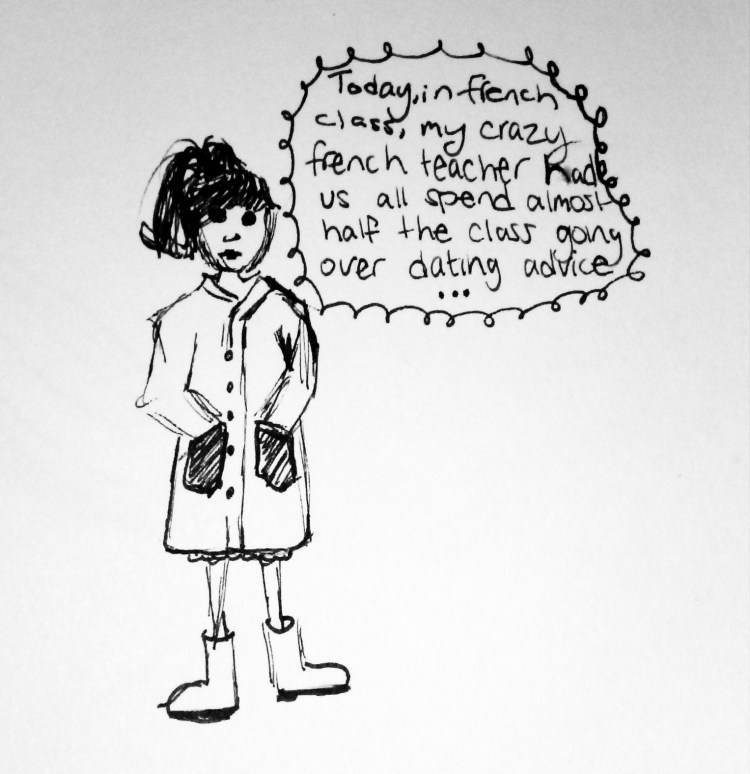 Today, in french
class, my crazy
french teacher had
us all spend almost
half the class going
over dating advice
...